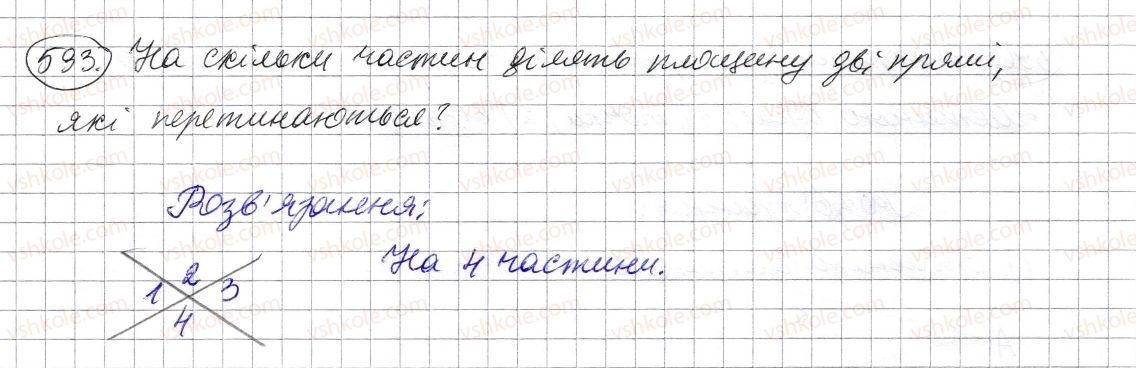 593. На скільки частин ділять площину дві прямі,
які перетинаються?
Розв'язання:
На 4 частини.
1 2 3
4
vshkole.com